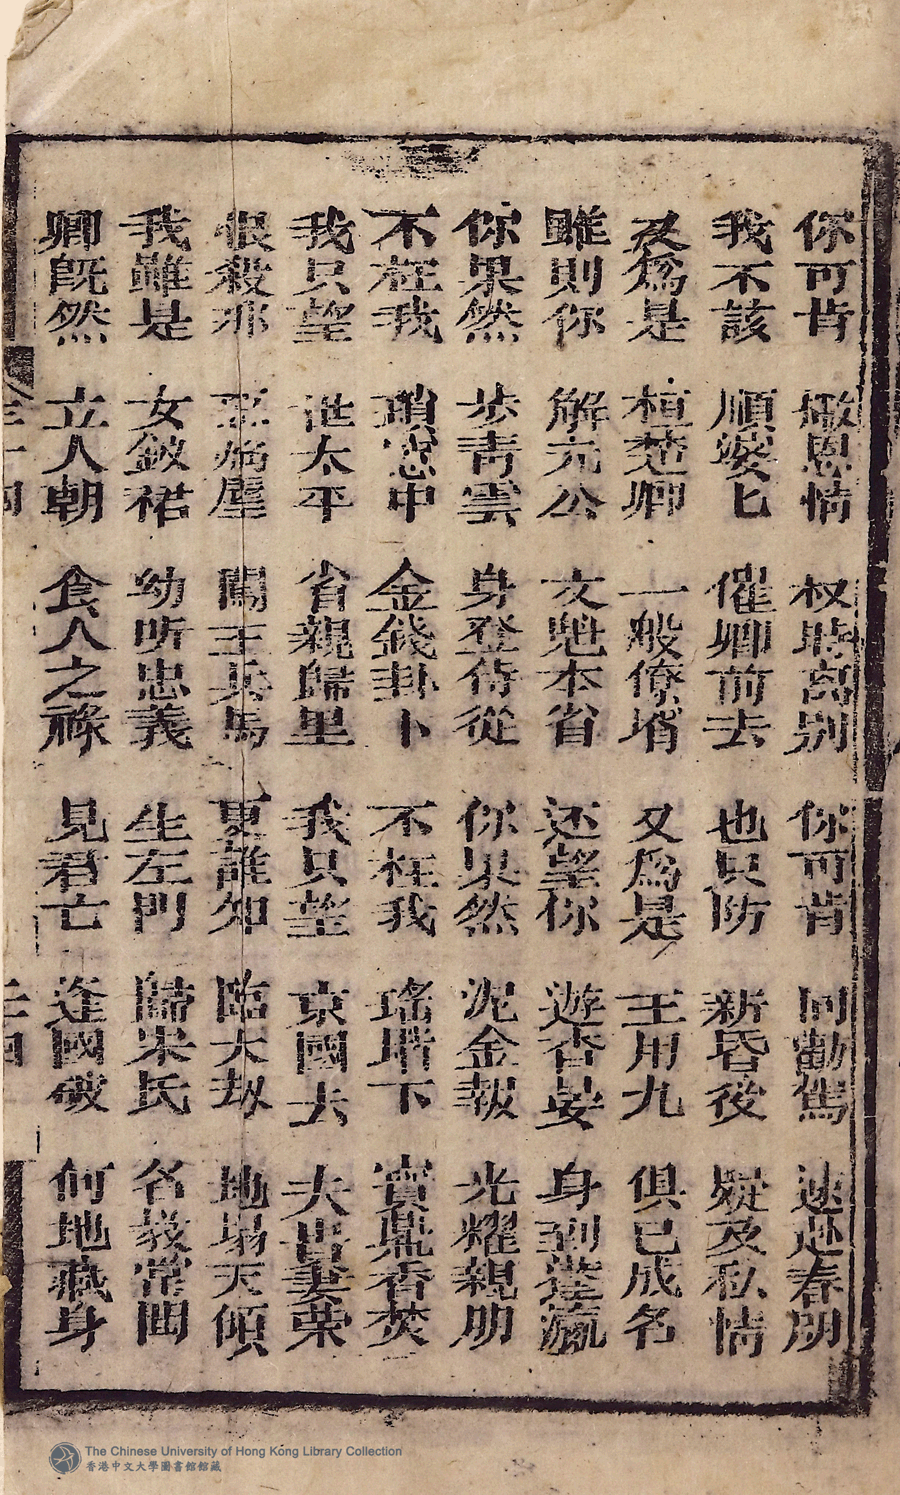 你可肯 撇恩情 权時离别 你可肯 同勸駕 速赴春明
我不該 順婆匕 催卿前去 也只防 新昏後 疑及私情
又為是 桓楚卿 一般僚壻 又為是 王用九 俱已成名
雖則你 解元公 文魁本省 还望你 遊杏晏 身到蓬瀛
你果然 步青雲 身登侍從 你果然 泥金報 光耀親朋
不枉我 瑣窓中 金錢卦卜 不枉我 瑤堦下 寳鼎香焚
我只望 太平 省親歸里 我只望 京國去 夫貴妻荣
恨殺那 闖王兵馬 更誰知 臨大劫 地塌天傾
我雖是 女釵裙 幼听忠義 生左門 歸宋氏 名教常聞
卿既然 立人朝 食人之祿 見君亡 逢國破 何地藏身
The Chinese University of Hong Kong Library Collection
香港中文大學圖書館館藏